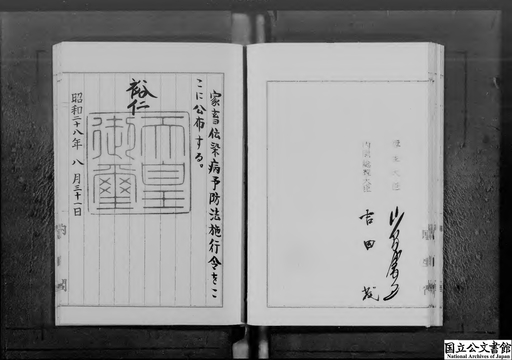 農林大臣
内閣総理大臣
吉田茂
家畜伝染病予防法施行令をこ
こに公布する。
裕仁
天皇
御璽
昭和二十八年八月三十一日
国立公文書館
National Archives of Japan